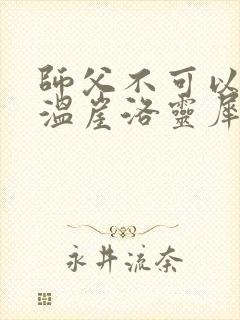 師父不可以
溫崖洛靈犀
永井流奈